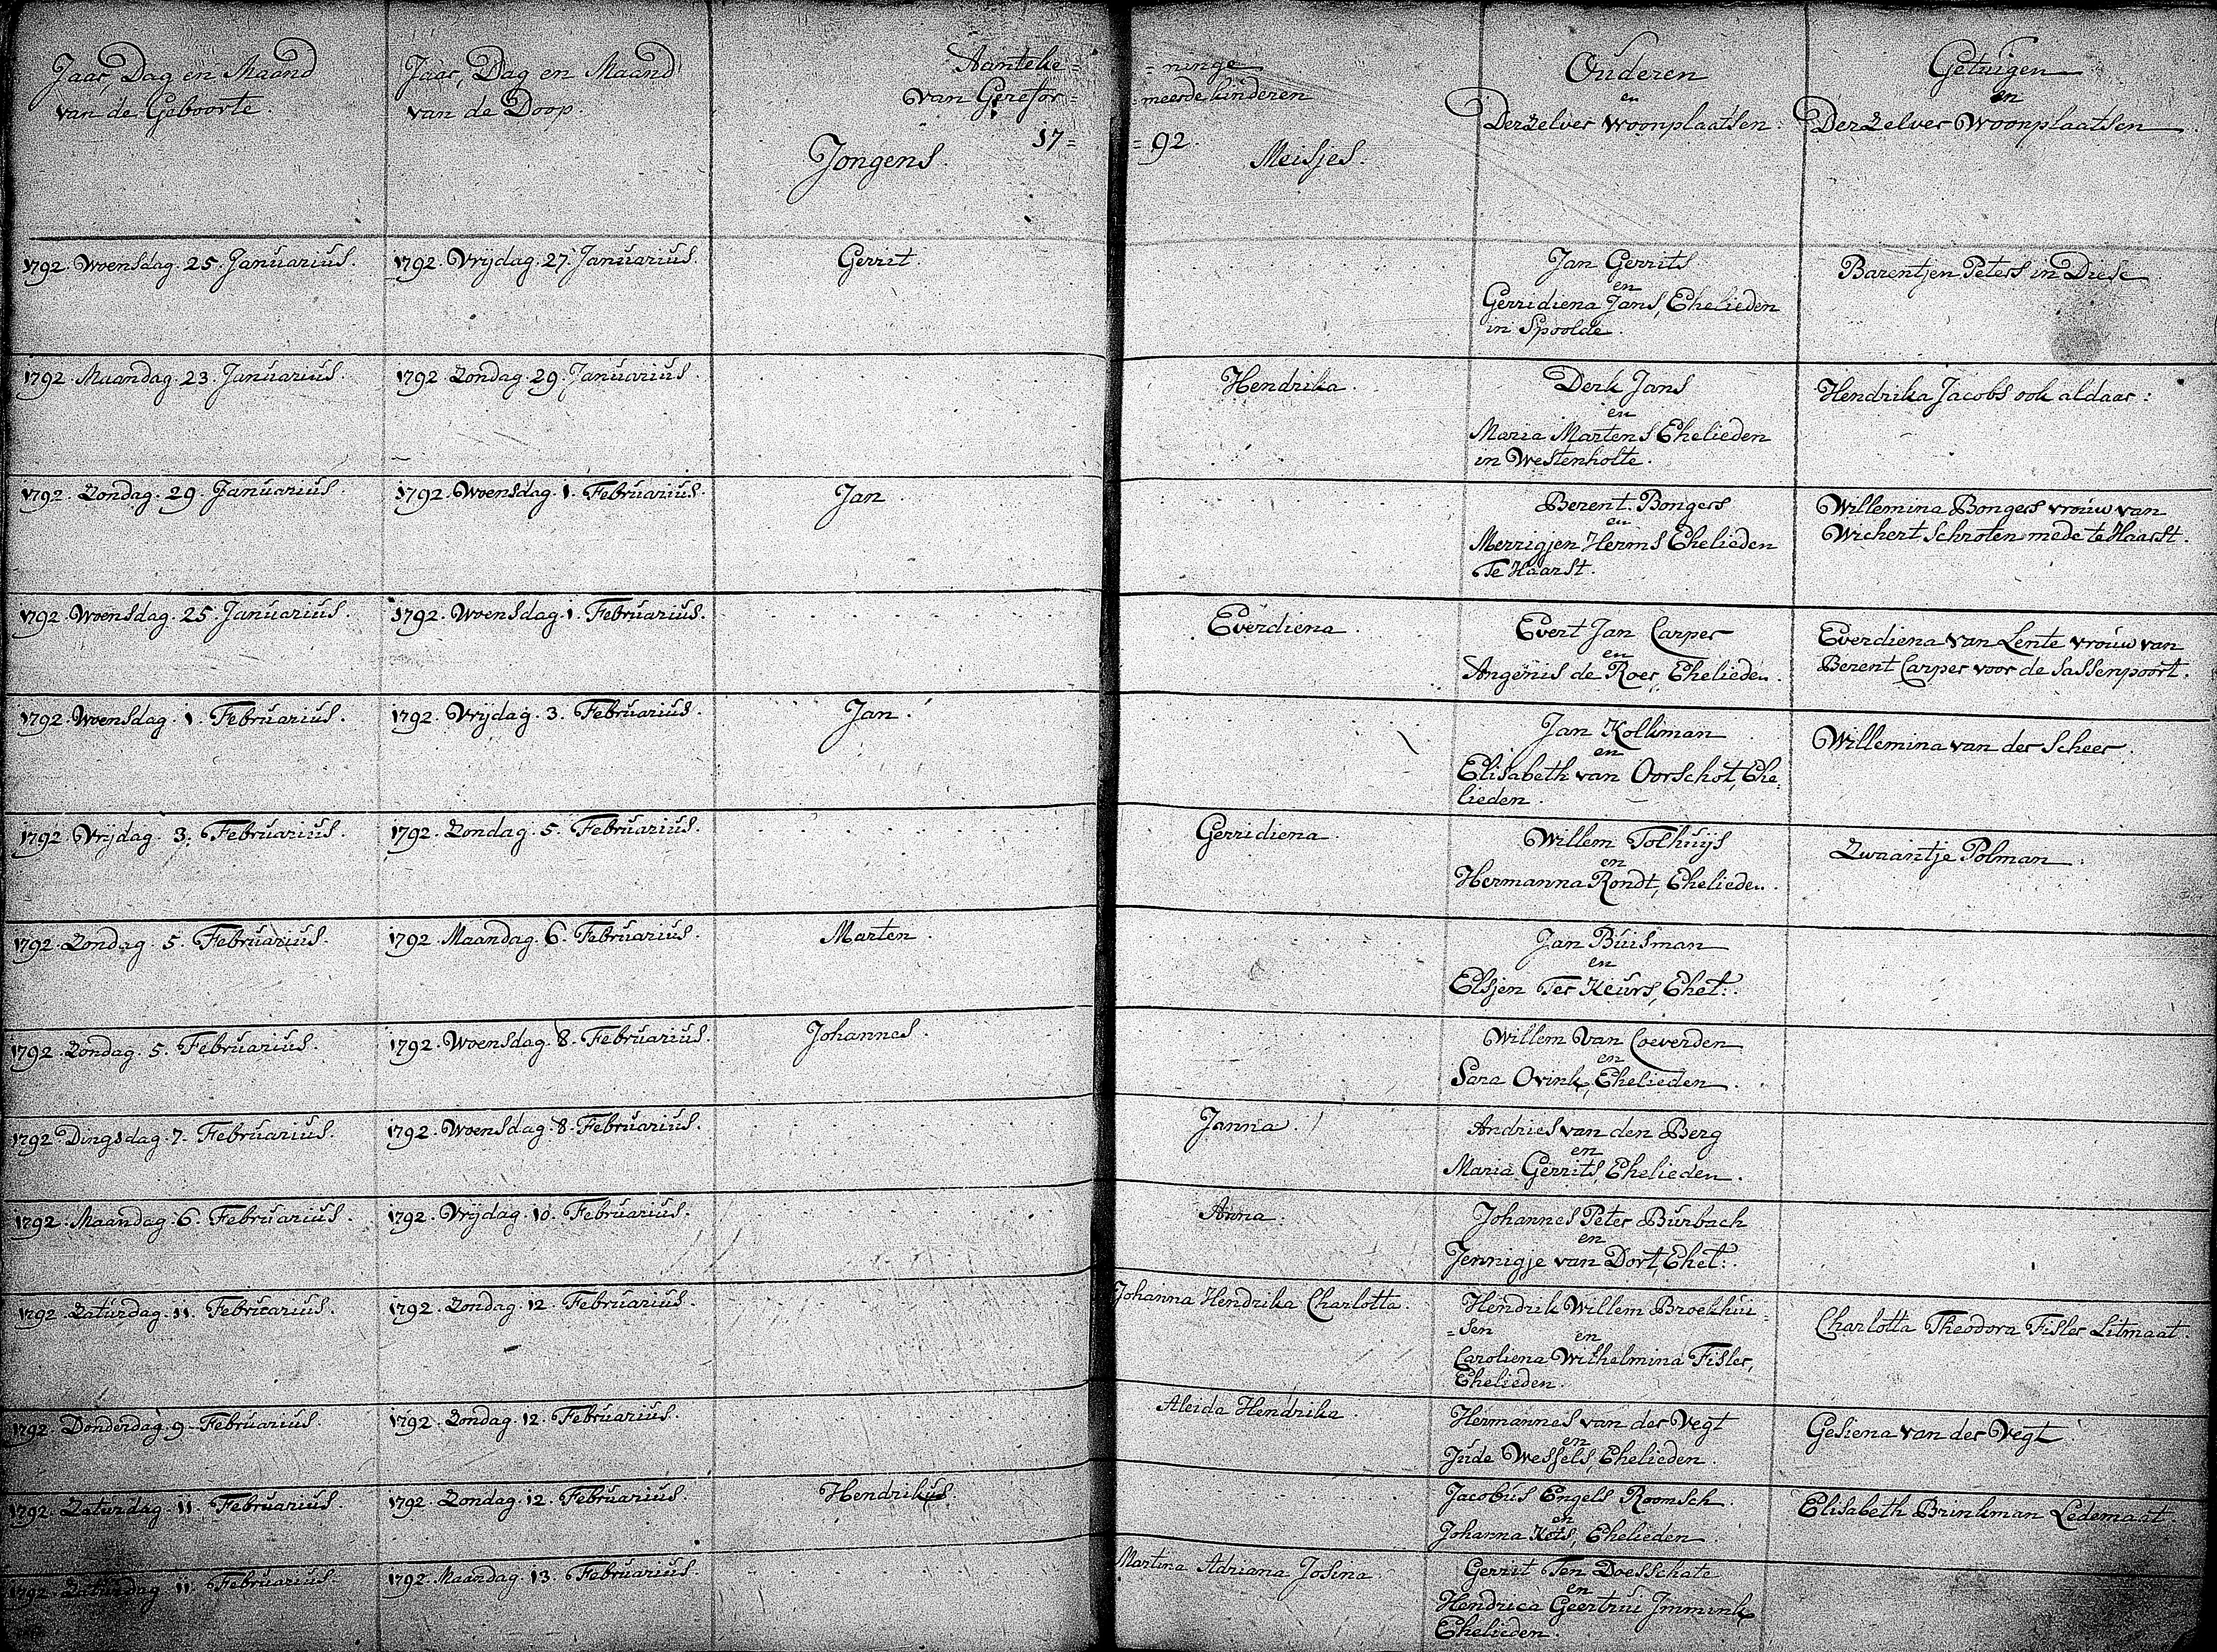 Jaar, Dag en Maand
van de Geboorte.
Jaar, Dag en Maand
van de Doop.
Aanteke= =ninge
van Gerefor= =meerde kinderen
17= =92.
Jongens.
Meisjes.
Ouderen
en
Derzelver woonplaatsen.
Getuigen
en
Derzelver Woonplaatsen.
1792. Woensdag. 25. Januarius.
1792. Vrijdag. 27. Januarius.
Gerrit.
Jan Gerrits
en
Gerridiena Jans, Ehelieden
in Spoolde.
Barentjen Peters in Diese
1792. Maandag. 23. Januarius.
1792. Zondag. 29. Januarius.
Hendrika.
Derk Jans
en
Maria Martens Ehelieden
in Westenholte.
Hendrika Jacobs ook aldaar:
1792. Zondag. 29. Januarius.
1792. Woensdag. 1. Februarius.
Jan.
Berent. Bongers
en
Merrigjen Herms Ehelieden
Te Haarst.
Willemina Bongers vrouw van
Wichert Schroten mede te Haarst.
1792. Woensdag. 25. Januarius.
1792. Woensdag. 1. Februarius.
Everdiena.
Evert Jan Carper
en
Angenis de Roer, Ehelieden.
Everdiena van Lente vrouw van
Berent Carper voor de Sassenpoort.
1792. Woensdag. 1. Februarius.
1792. Vrijdag. 3. Februarius.
Jan.
Jan Kolkman
en
Elisabeth van Oorschot, Ehe-
lieden.
Willemina van der Scheer.
1792. Vrijdag. 3. Februarius.
1792. Zondag. 5. Februarius.
Gerridiena.
Willem Tolhuijs
en
Hermanna Rondt, Ehelieden.
Zwaantje Polman.
1792. Zondag. 5. Februarius.
1792. Maandag. 6. Februarius.
Marten.
Jan Buisman
en
Elsjen Ter Keurs, Ehel:.
1792. Zondag. 5. Februarius.
1792. Woensdag. 8. Februarius.
Johannes.
Willem Van Coeverden
en
Sara Ovink, Ehelieden.
1792 Dingsdag. 7. Februarius.
1792. Woensdag. 8. Februarius.
Janna.
Andries van den Berg
en
Maria Gerrits, Ehelieden.
1792. Maandag. 6. Februarius.
1792. Vrijdag. 10. Februarius.
Anna.
Johannes Peter Burbach
en
Jennigje van Dort, Ehel:.
1792. Zaturdag. 11. Februarius.
1792. Zondag. 12. Februarius.
Johanna Hendrika Charlotta.
Hendrik Willem Broekhui=
=sen en
Caroliena Wilhelmina Fisler,
Ehelieden.
Charlotta Theodora Fisler Litmaat.
1792. Donderdag. 9. Februarius.
1792. Zondag. 12. Februarius.
Aleida Hendrika.
Hermannes van der Vegt
en
Jude Wessels, Ehelieden.
Gesiena van der Vegt.
1792. Zaturdag. 11. Februarius.
1792. Zondag. 12. Februarius.
Hendrikus.
Jacobus Engels Roomsch.
en
Johanna Kots, Ehelieden.
Elisabeth Brinkman Ledemaat.
1792. Zaturdag. 11. Februarius.
1792. Maandag. 13. Februarius.
Martina Adriana Josina.
Gerrit Ten Doesschate
en
Hendrica Geertrui Immink
Ehelieden.